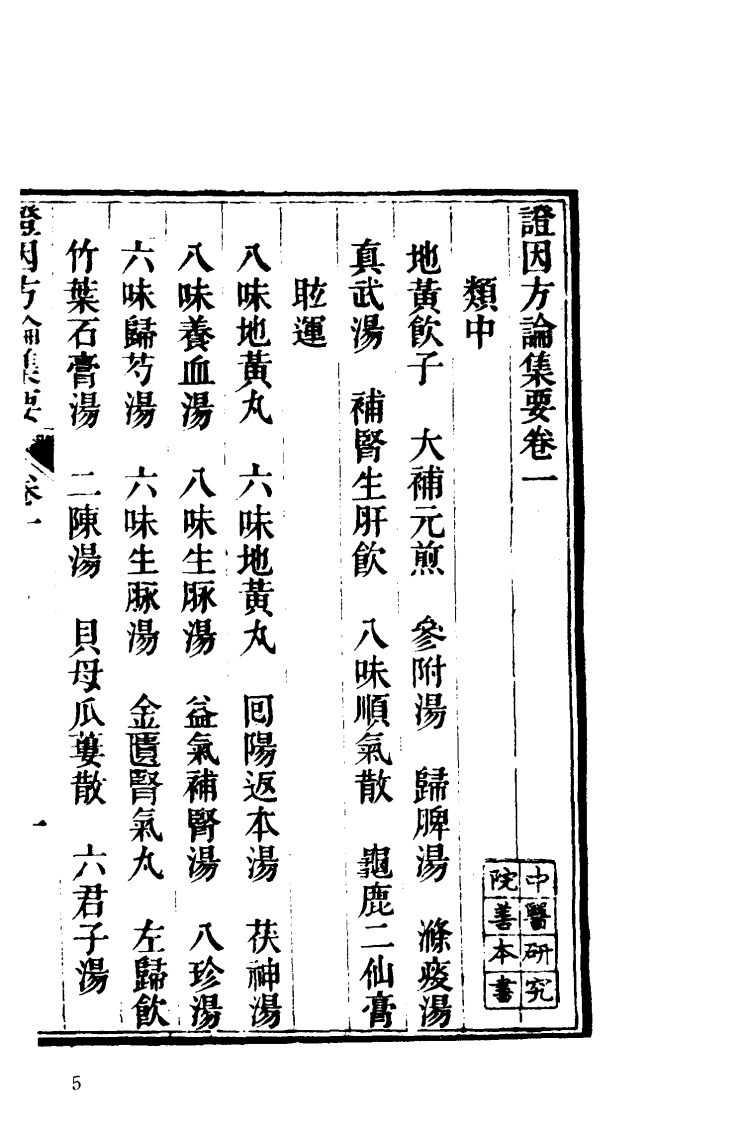 證因方論集要卷一
類中
地黃飲子　大補元煎　參附湯　歸脾湯　滌痰湯
真武湯　補腎生肝飲　八味順氣散　龜鹿二仙膏
眩運
八味地黃丸　六味地黃丸　囘陽返本湯　茯神湯
八味養血湯　八味生脉湯　益氣補腎湯　八珍湯
六味歸芍湯　六味生脉湯　金匱腎氣丸　左歸飲
竹葉石膏湯　二陳湯　貝母瓜蔞散　六君子湯
證因方論集要　卷一　一
中醫研究
院善本書
5